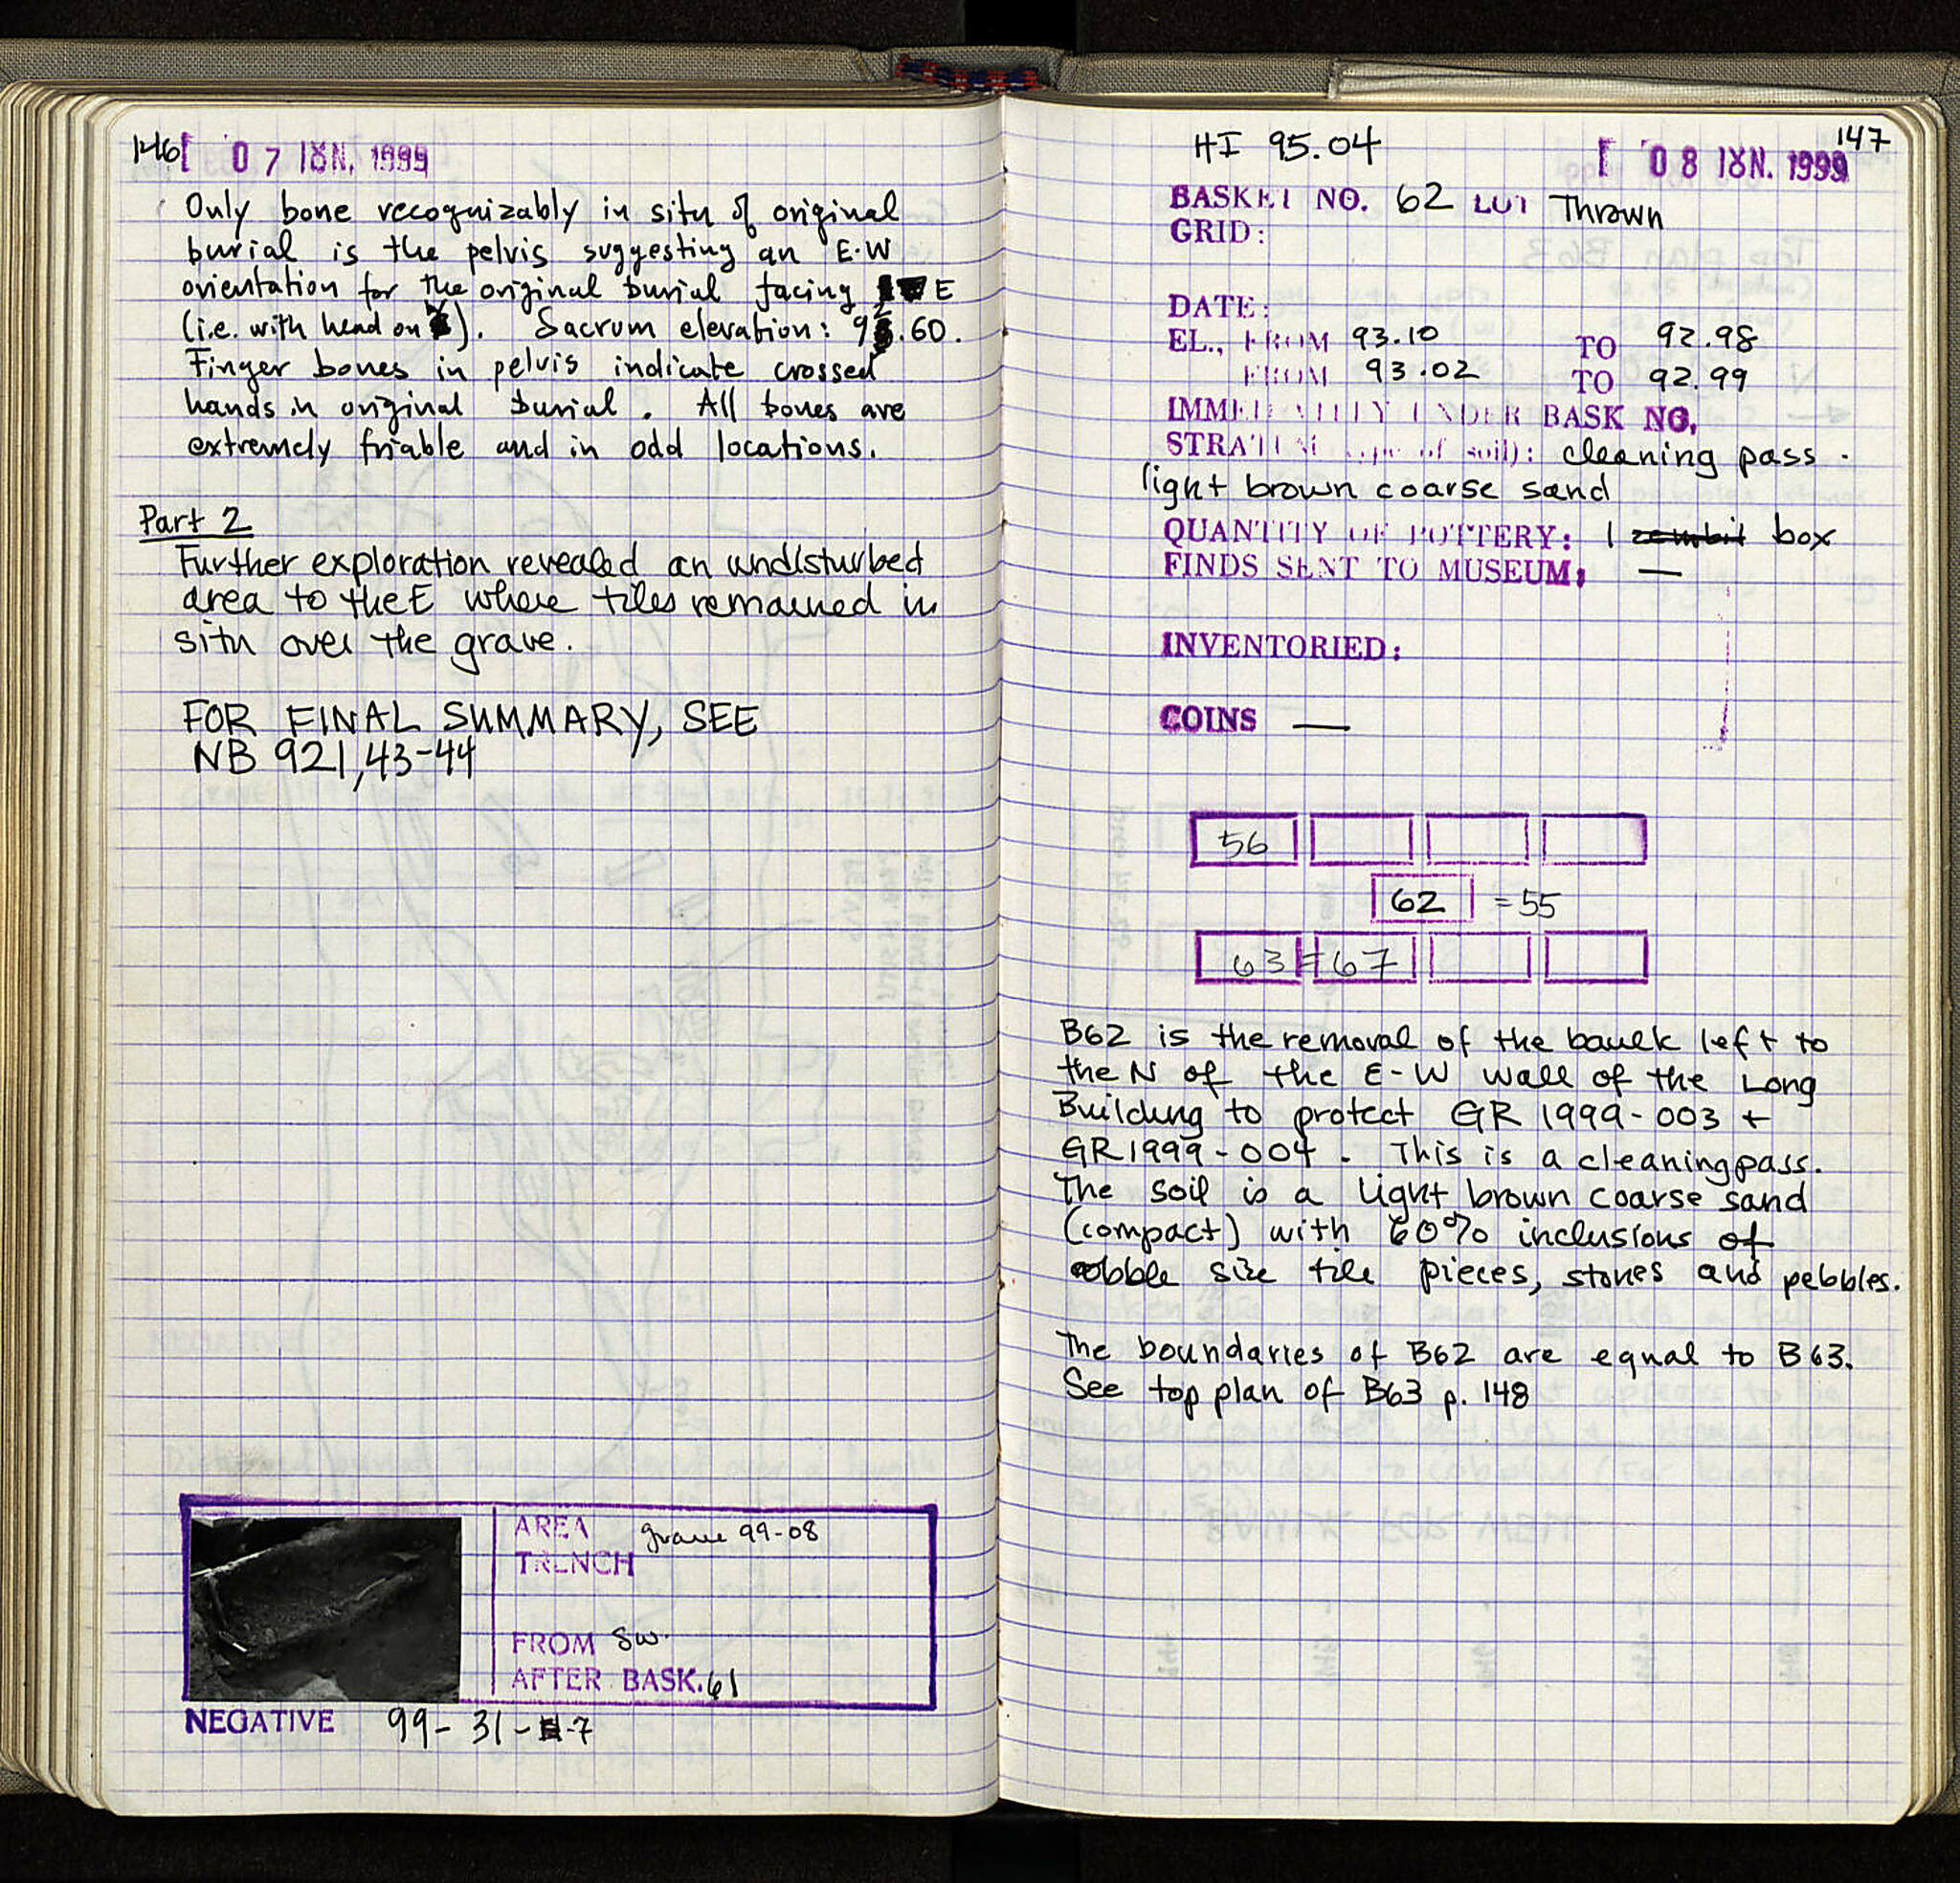 146
07 ΙΟΥΝ. 1999
Only bone recognizably in situ of original
burial is the pelvis suggesting an E-W
orientation for the original burial facing E
(i.e. with head on W). Sacrum elevation: 92.60.
Finger bones in pelvis indicate crossed
hands in original burial. All bones are
extremely friable and in odd locations.
Part 2
Further exploration revealed an undisturbed
area to the E where tiles remained in
situ over the grave.
FOR FINAL SUMMARY, SEE
NB 921, 43-44
AREA grave 99-08
TRENCH
FROM SW.
AFTER BASK. 61
NEGATIVE 99-31-7
147
HI 95.04
08 ΙΟΥΝ. 1999
BASKET NO. 62 LOT Thrown
GRID:
DATE:
EL., FROM 93.10 TO 92.98
FROM 93.02 TO 92.99
IMMEDIATELY UNDER BASK NO.
STRATUM (type of soil): cleaning pass.
light brown coarse sand
QUANTITY OF POTTERY: 1 zembil box
FINDS SENT TO MUSEUM: —
INVENTORIED:
COINS —
56
62 = 55
63 = 67
B62 is the removal of the baulk left to
the N of the E-W wall of the Long
Building to protect GR 1999-003 +
GR1999-004. This is a cleaning pass.
The soil is a light brown coarse sand
(compact) with 60% inclusions of
cobble size tile pieces, stones and pebbles.
The boundaries of B62 are equal to B63.
See top plan of B63 p. 148